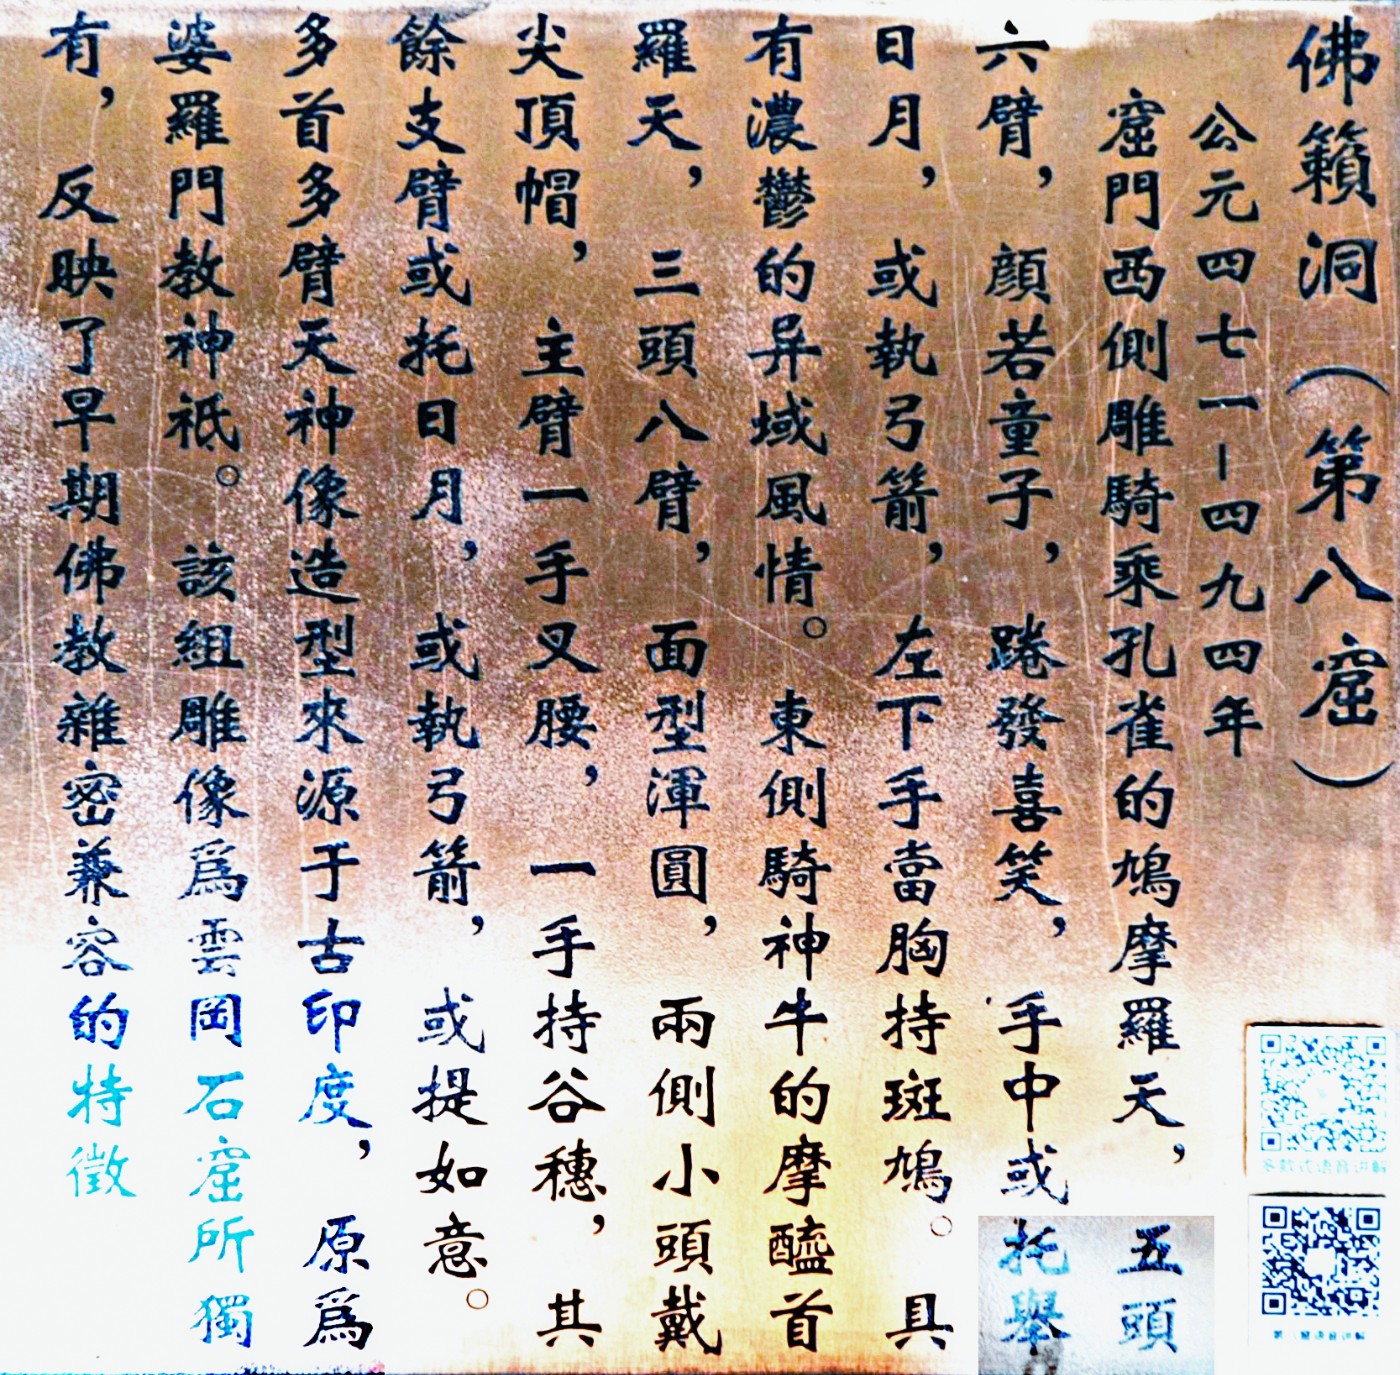 佛籟洞（第八窟）
公元四七一－四九四年
窟門西側雕騎乘孔雀的鳩摩羅天，五頭
六臂，顔若童子，踡發喜笑，手中或托舉
日月，或執弓箭，左下手當胸持斑鳩。具
有濃鬱的异域風情。東側騎神牛的摩醯首
羅天，三頭八臂，面型渾圓，兩側小頭戴
尖頂帽，主臂一手叉腰，一手持谷穗，其
餘支臂或托日月，或執弓箭，或提如意。
多首多臂天神像造型來源于古印度，原爲
婆羅門教神祇。該組雕像爲雲岡石窟所獨
有，反映了早期佛教雜密兼容的特徵
多款式语音讲解